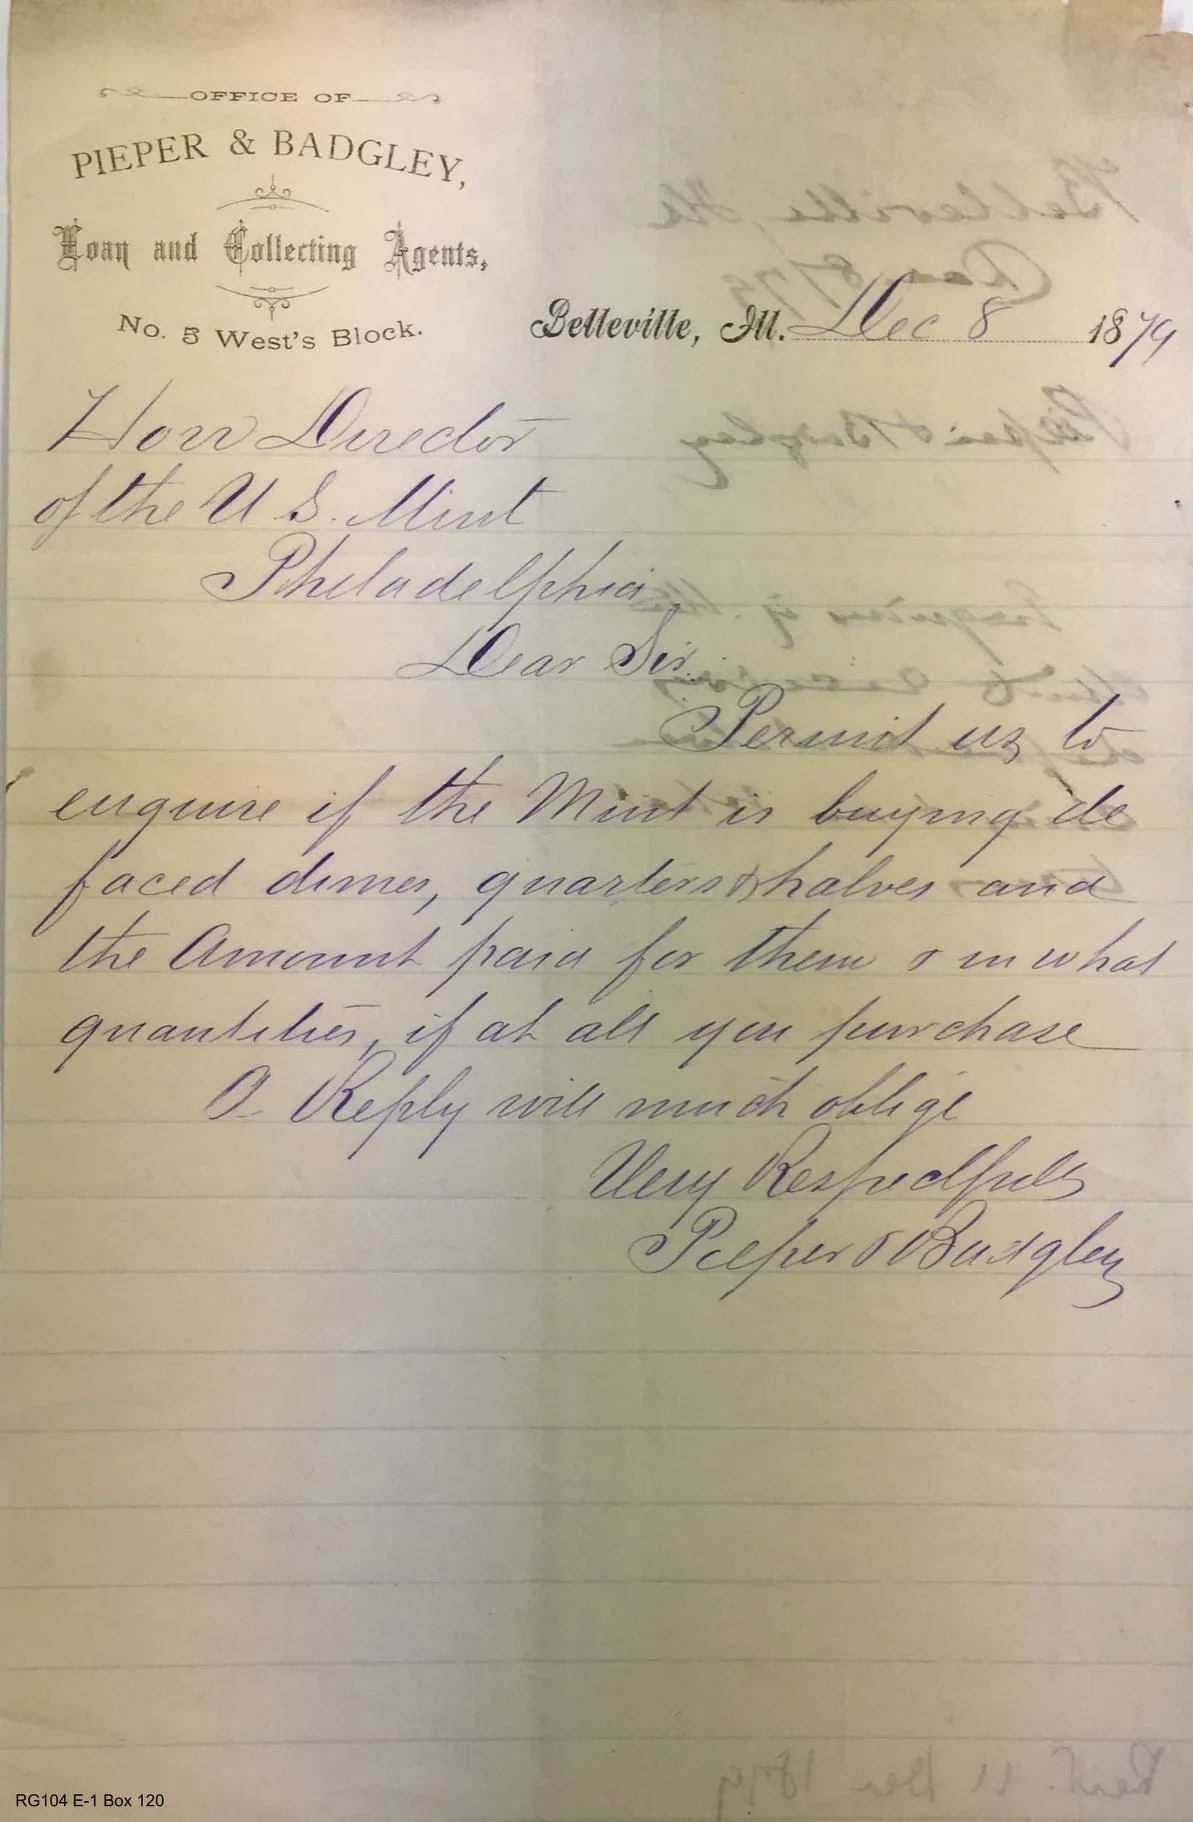 OFFICE OF
PIEPER & BADGLEY,
Loan and Collecting Agents,
No. 5 West's Block.
Belleville, Ill. Dec 8 1879
Hon Director
of the U S. Mint
Philadelphia
Dear Sir.
Permit us to
enquire if the Mint is buying de
faced dimes, quarters & halves and
the Amount paid for them & in what
quantities, if at all you purchase
A Reply will much oblige
Very Respectfully
Pieper & Badgley
Belleville, Ills
Dec 8/79
Pieper & Badgley
Enquires if the
Mint
Recd. 11 Dec 1879
RG104 E-1 Box 120